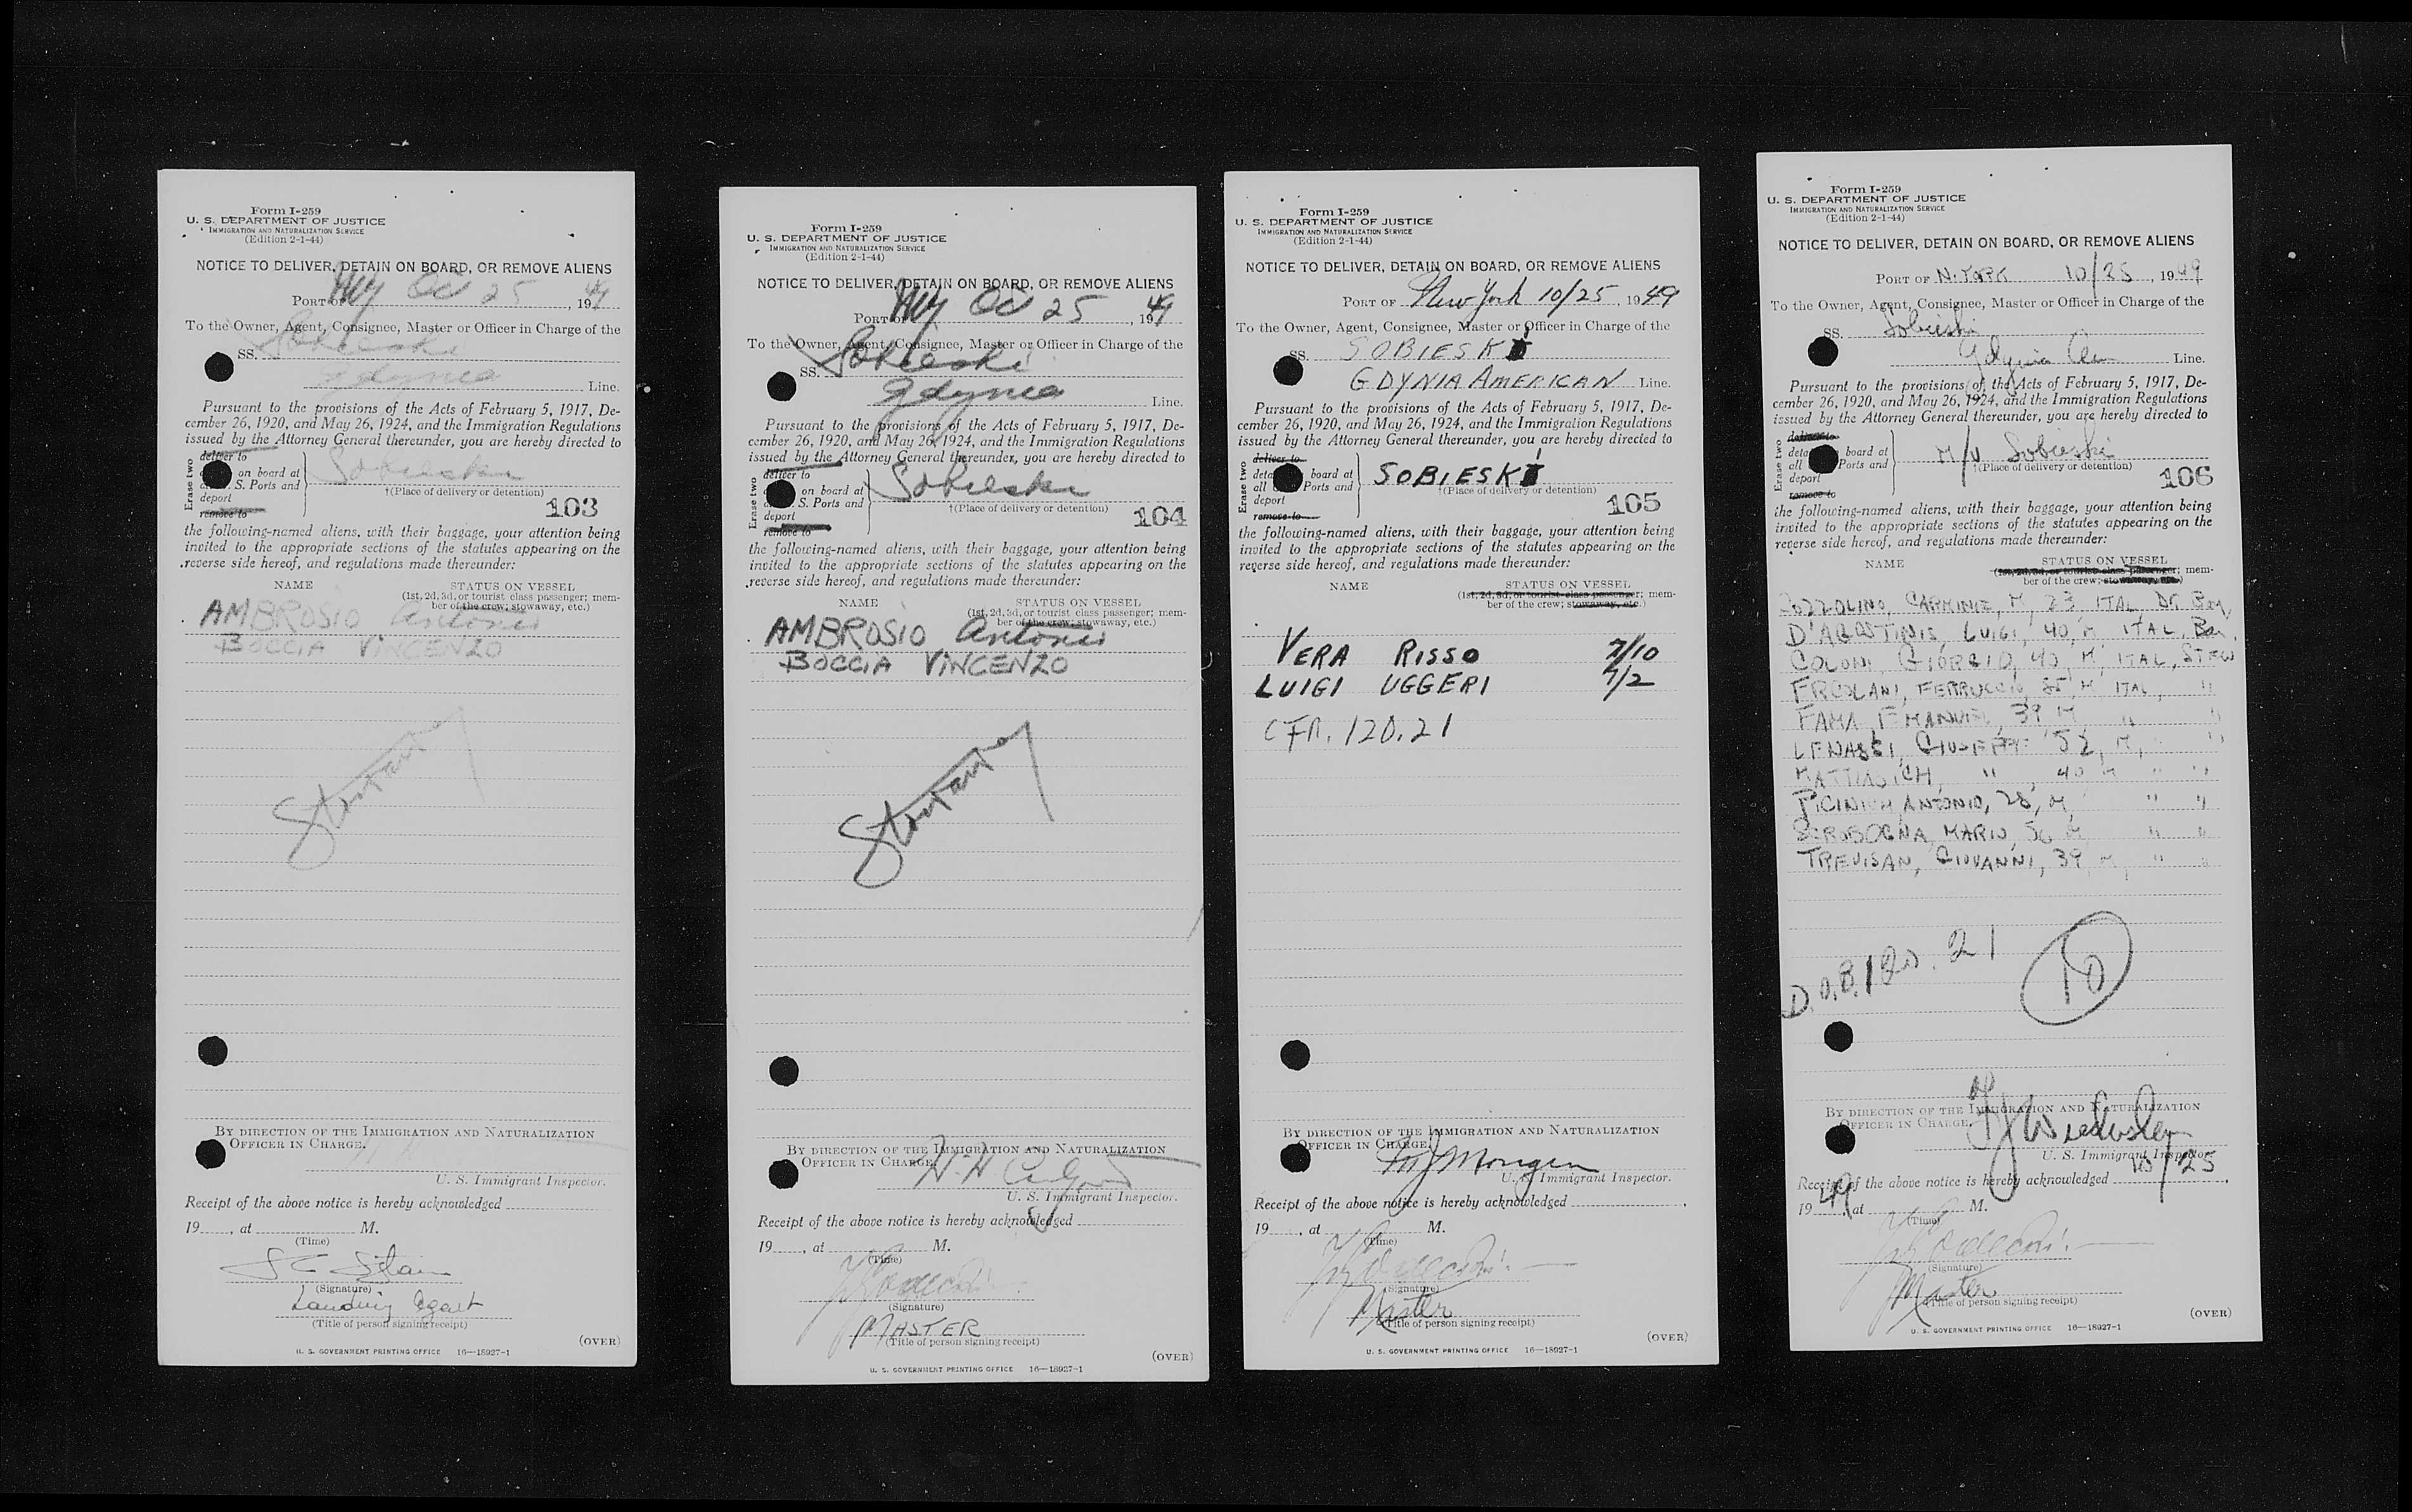 Form I-259
U. S. DEPARTMENT OF JUSTICE
IMMIGRATION AND NATURALIZATION SERVICE
(Edition 2-1-44)
NOTICE TO DELIVER, DETAIN ON BOARD, OR REMOVE ALIENS
PORT OF NY Oct 25, 1949
To the Owner, Agent, Consignee, Master or Officer in Charge of the
SS. Sobieski
Gdynia Line.
Pursuant to the provisions of the Acts of February 5, 1917, De-
cember 26, 1920, and May 26, 1924, and the Immigration Regulations
issued by the Attorney General thereunder, you are hereby directed to
Erase two
deliver to
on board at
S. Ports and
deport
remove to
Sobieski
†(Place of delivery or detention)
103
the following-named aliens, with their baggage, your attention being
invited to the appropriate sections of the statutes appearing on the
reverse side hereof, and regulations made thereunder:
NAME STATUS ON VESSEL
(1st, 2d, 3d, or tourist class passenger; mem-
ber of the crew; stowaway, etc.)
AMBROSIO Antonio
BOCCIA VINCENZO
Stowaway
BY DIRECTION OF THE IMMIGRATION AND NATURALIZATION
OFFICER IN CHARGE.
U. S. Immigrant Inspector.
Receipt of the above notice is hereby acknowledged
19, at M.
(Time)
(Signature)
Landing Agent
(Title of person signing receipt)
(OVER)
U. S. GOVERNMENT PRINTING OFFICE 16—18927-1
Form I-259
U. S. DEPARTMENT OF JUSTICE
IMMIGRATION AND NATURALIZATION SERVICE
(Edition 2-1-44)
NOTICE TO DELIVER, DETAIN ON BOARD, OR REMOVE ALIENS
PORT OF NY Oct 25, 1949
To the Owner, Agent, Consignee, Master or Officer in Charge of the
SS. Sobieski
Gdynia Line.
Pursuant to the provisions of the Acts of February 5, 1917, De-
cember 26, 1920, and May 26, 1924, and the Immigration Regulations
issued by the Attorney General thereunder, you are hereby directed to
Erase two
deliver to
on board at
S. Ports and
deport
remove to
Sobieski
†(Place of delivery or detention)
104
the following-named aliens, with their baggage, your attention being
invited to the appropriate sections of the statutes appearing on the
reverse side hereof, and regulations made thereunder:
NAME STATUS ON VESSEL
(1st, 2d, 3d, or tourist class passenger; mem-
ber of the crew; stowaway, etc.)
AMBROSIO Antonio
BOCCIA VINCENZO
Stowaway
BY DIRECTION OF THE IMMIGRATION AND NATURALIZATION
OFFICER IN CHARGE.
U. S. Immigrant Inspector.
Receipt of the above notice is hereby acknowledged
19, at M.
(Time)
(Signature)
MASTER
(Title of person signing receipt)
(OVER)
U. S. GOVERNMENT PRINTING OFFICE 16—18927-1
Form I-259
U. S. DEPARTMENT OF JUSTICE
IMMIGRATION AND NATURALIZATION SERVICE
(Edition 2-1-44)
NOTICE TO DELIVER, DETAIN ON BOARD, OR REMOVE ALIENS
PORT OF New York 10/25, 1949
To the Owner, Agent, Consignee, Master or Officer in Charge of the
SS. SOBIESKI
GDYNIA AMERICAN Line.
Pursuant to the provisions of the Acts of February 5, 1917, De-
cember 26, 1920, and May 26, 1924, and the Immigration Regulations
issued by the Attorney General thereunder, you are hereby directed to
Erase two
deliver to
deta board at
all Ports and
deport
remove to
SOBIESKI
†(Place of delivery or detention)
105
the following-named aliens, with their baggage, your attention being
invited to the appropriate sections of the statutes appearing on the
reverse side hereof, and regulations made thereunder:
NAME STATUS ON VESSEL
(1st, 2d, 3d, or tourist class passenger; mem-
ber of the crew; stowaway, etc.)
VERA RISSO 7/10
LUIGI UGGERI 7/2
CFR. 120.21
BY DIRECTION OF THE IMMIGRATION AND NATURALIZATION
OFFICER IN CHARGE.
U. S. Immigrant Inspector.
Receipt of the above notice is hereby acknowledged
19, at M.
(Time)
(Signature)
Master
(Title of person signing receipt)
(OVER)
U. S. GOVERNMENT PRINTING OFFICE 16—18927-1
Form I-259
U. S. DEPARTMENT OF JUSTICE
IMMIGRATION AND NATURALIZATION SERVICE
(Edition 2-1-44)
NOTICE TO DELIVER, DETAIN ON BOARD, OR REMOVE ALIENS
PORT OF N. YORK 10/25, 1949
To the Owner, Agent, Consignee, Master or Officer in Charge of the
SS. Sobieski
Gdynia Am Line.
Pursuant to the provisions of the Acts of February 5, 1917, De-
cember 26, 1920, and May 26, 1924, and the Immigration Regulations
issued by the Attorney General thereunder, you are hereby directed to
Erase two
deliver to
deta board at
all Ports and
deport
remove to
M/V Sobieski
†(Place of delivery or detention)
106
the following-named aliens, with their baggage, your attention being
invited to the appropriate sections of the statutes appearing on the
reverse side hereof, and regulations made thereunder:
NAME STATUS ON VESSEL
(1st, 2d, 3d, or tourist class passenger; mem-
ber of the crew; stowaway, etc.)
CARMINE, M, 23 ITAL
D'AGOSTINIS, LUIGI, 40, M ITAL.
COLONI, GIORGIO, 40, M, ITAL, STEW
ERCOLANI, FERRUCCIO, 35, M, ITAL, "
FAMA, EMANUEL, 39 M " "
GIUSEPPE 52, M, " "
" 40 M " "
ANTONIO, 28, M, " "
SCROBOGNA, MARIO, 50 M " "
TREVISAN, GIOVANNI, 39, M, " "
120.21
10
BY DIRECTION OF THE IMMIGRATION AND NATURALIZATION
OFFICER IN CHARGE.
U. S. Immigrant Inspector.
Receipt of the above notice is hereby acknowledged 10/25
1949, at M.
(Time)
(Signature)
Master
(Title of person signing receipt)
(OVER)
U. S. GOVERNMENT PRINTING OFFICE 16—18927-1